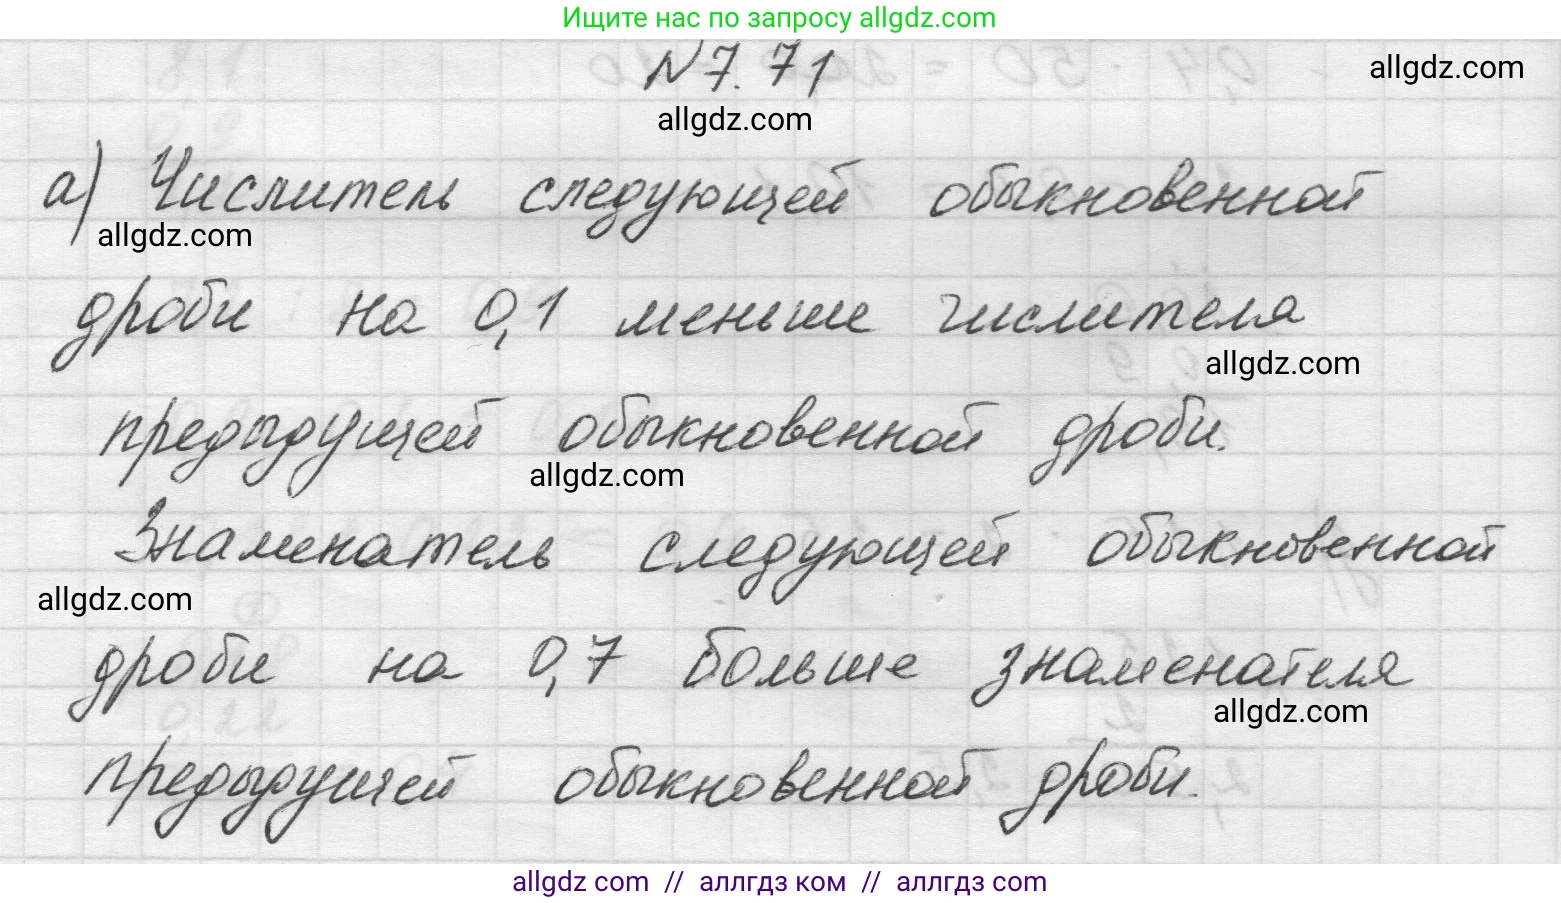 Ищите нас по запросу allgdz.com
N 7.71
allgdz.com
allgdz.com
а) Числитель следующей обыкновенной
allgdz.com
дроби на 0,1 меньше числителя
allgdz.com
предыдущей обыкновенной дроби.
allgdz.com
Знаменатель следующей обыкновенной
allgdz.com
дроби на 0,7 больше знаменателя
allgdz.com
предыдущей обыкновенной дроби.
allgdz com // аллгдз ком // аллгдз com